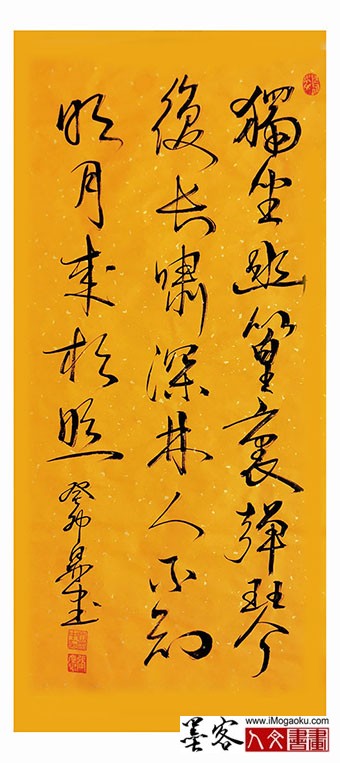 獨坐幽篁裏彈琴
復長嘯深林人不知
明月來相照
癸卯 書
墨客
www.iMogaoku.com
人文書畫